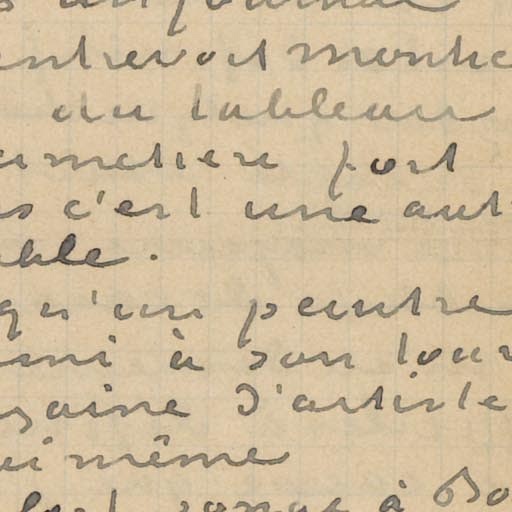 entrevoit montre
au tableau
imetiere fort
s c'est une aut
able.
qu'un peintre
mi à son tour
zaine d'artiste
ui même
à Bo